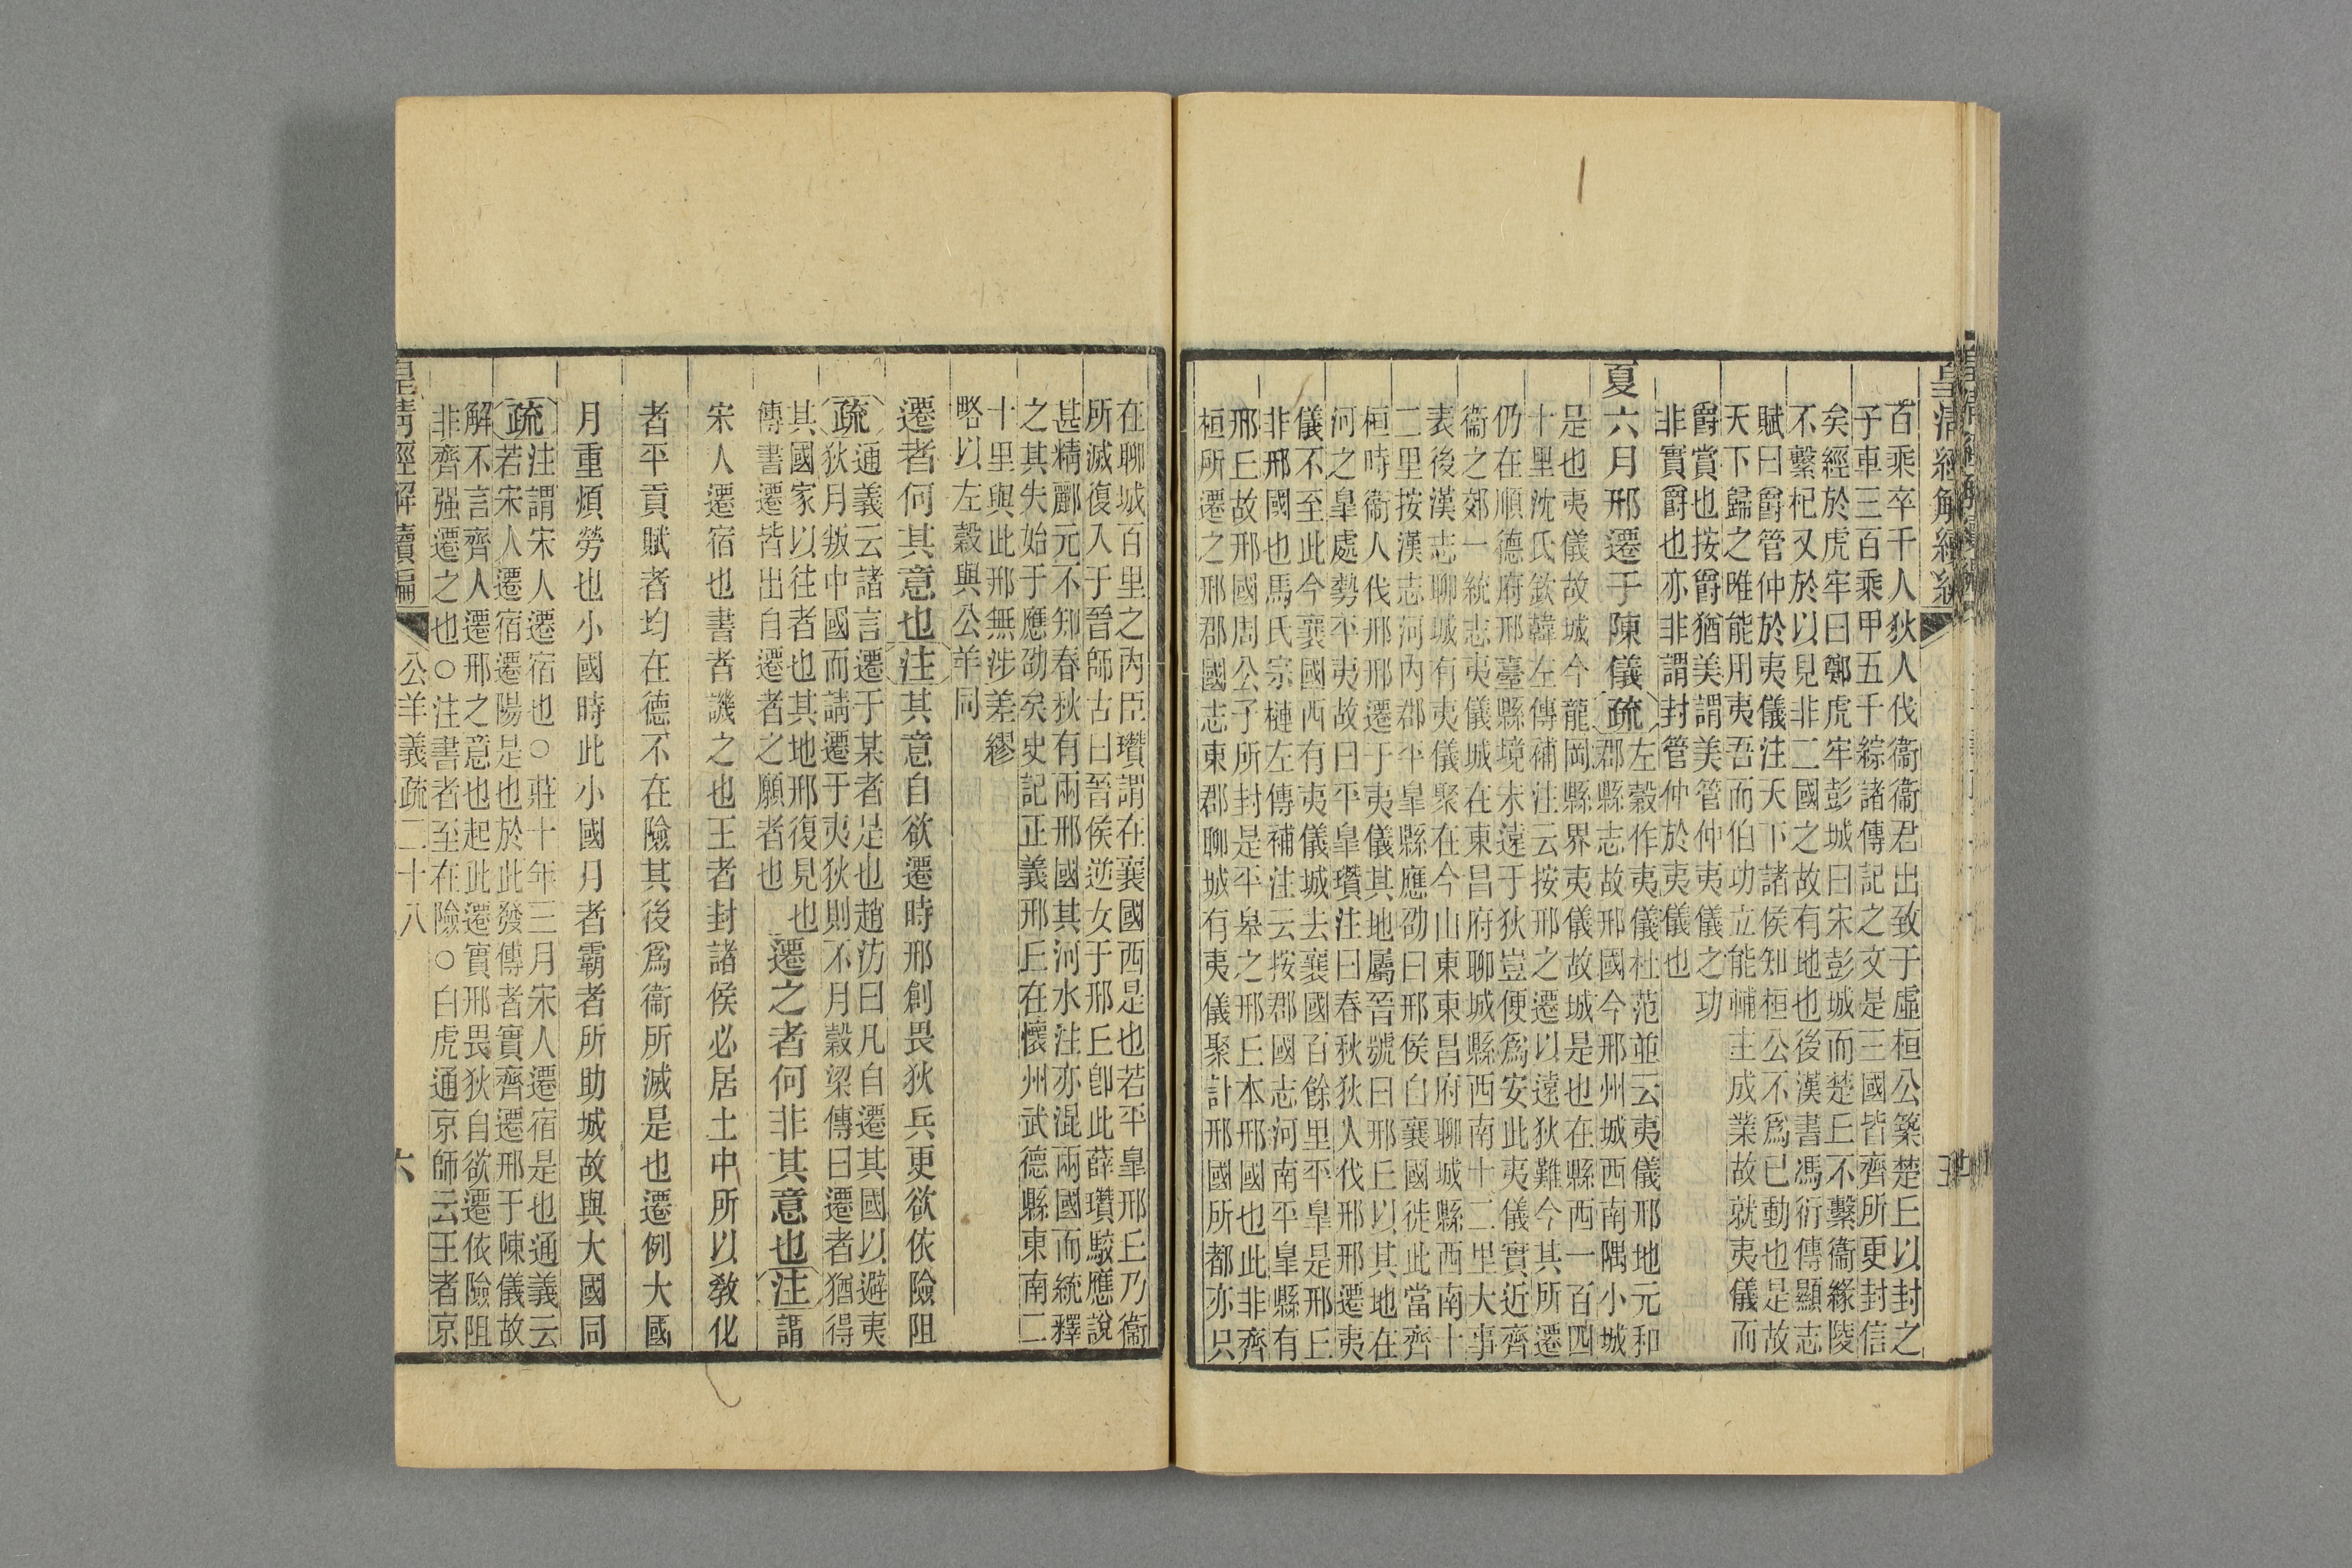 皇清經解續編
百乘卒千人狄人伐衞衞君出致于虛桓公築楚丘以封之
子車三百乘甲五千綜諸傳記之文是三國皆齊所更封信
矣經於虎牢曰鄭虎牢彭城曰宋彭城而楚丘不繫衞緣陵
不繫杞又於以見非二國之故有地也後漢書馮衍傳顯志
賦曰爵管仲於夷儀注天下諸侯知桓公不爲已動也是故
天下歸之唯能用夷吾而伯功立能輔主成業故就夷儀而
爵賞也按爵猶美謂美管仲夷儀之功
非實爵也亦非謂封管仲於夷儀也
夏六月邢遷于陳儀疏
左穀作夷儀杜范並云夷儀邢地元和
郡縣志故邢國今邢州城西南隅小城
是也夷儀故城今龍岡縣界夷儀故城是也在縣西一百四
十里沈氏欽韓左傳補注云按邢之遷以遠狄難今其所遷
仍在順德府邢臺縣境未遠于狄豈便爲安此夷儀實近齊
衞之郊一統志夷儀城在東昌府聊城縣西南十二里大事
表後漢志聊城有夷儀聚在今山東東昌府聊城縣西南十
二里按漢志河內郡平皐縣應劭曰邢侯自襄國徙此當齊
桓時衞人伐邢邢遷于夷儀其地屬晉號曰邢丘以其地在
河之皐處勢平夷故曰平皐瓚注曰春秋狄人伐邢邢遷夷
儀不至此今襄國西有夷儀城去襄國百餘里平皐是邢丘
非邢國也馬氏宗槤左傳補注云按郡國志河南平皐縣有
邢丘故邢國周公子所封是平皋之邢丘本邢國也此非齊
桓所遷之邢郡國志東郡聊城有夷儀聚計邢國所都亦只
在聊城百里之內臣瓚謂在襄國西是也若平皐邢丘乃衞
所滅復入于晉師古曰晉侯逆女于邢丘卽此薛瓚駮應說
甚精酈元不知春秋有兩邢國其河水注亦混兩國而統釋
之其失始于應劭矣史記正義邢丘在懷州武德縣東南二
十里與此邢無涉差繆
略以左穀與公羊同
遷者何其意也注其意自欲遷時邢創畏狄兵更欲依險阻
疏
通義云諸言遷于某者是也趙汸曰凡自遷其國以避夷
狄月叛中國而請遷于夷狄則不月穀梁傳曰遷者猶得
其國家以往者也其地邢復見也
傳書遷皆出自遷者之願者也
遷之者何非其意也注謂
宋人遷宿也書者譏之也王者封諸侯必居土中所以敎化
者平貢賦者均在德不在險其後爲衞所滅是也遷例大國
月重煩勞也小國時此小國月者霸者所助城故與大國同
疏
注謂宋人遷宿也○莊十年三月宋人遷宿是也通義云
若宋人遷宿遷陽是也於此發傳者實齊遷邢于陳儀故
解不言齊人遷邢之意也起此遷實邢畏狄自欲遷依險阻
非齊强遷之也○注書者至在險○白虎通京師云王者京
皇清經解續編
公羊義疏二十八
六